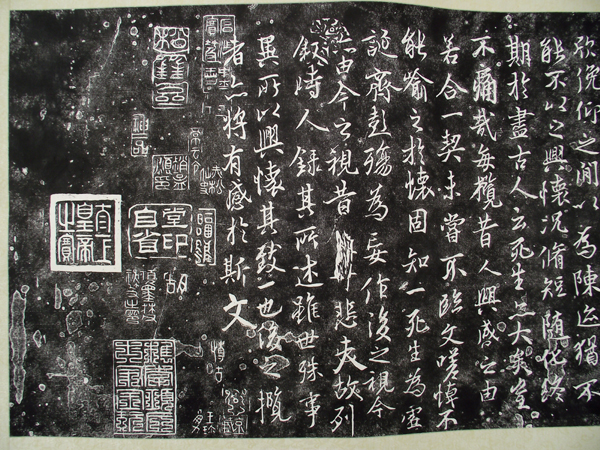 欣俛仰之閒以為陳迹猶不
能不以之興懷況脩短随化終
期於盡古人云死生亦大矣豈
不痛哉每攬昔人興感之由
若合一契未嘗不臨文嗟悼不
能喻之於懷固知一死生為虛
誕齊彭殤為妄作後之視今
亦由今之視昔悲夫故列
敘時人錄其所述雖世殊事
異所以興懷其致一也後之攬
者亦將有感於斯文
太上皇帝之寶